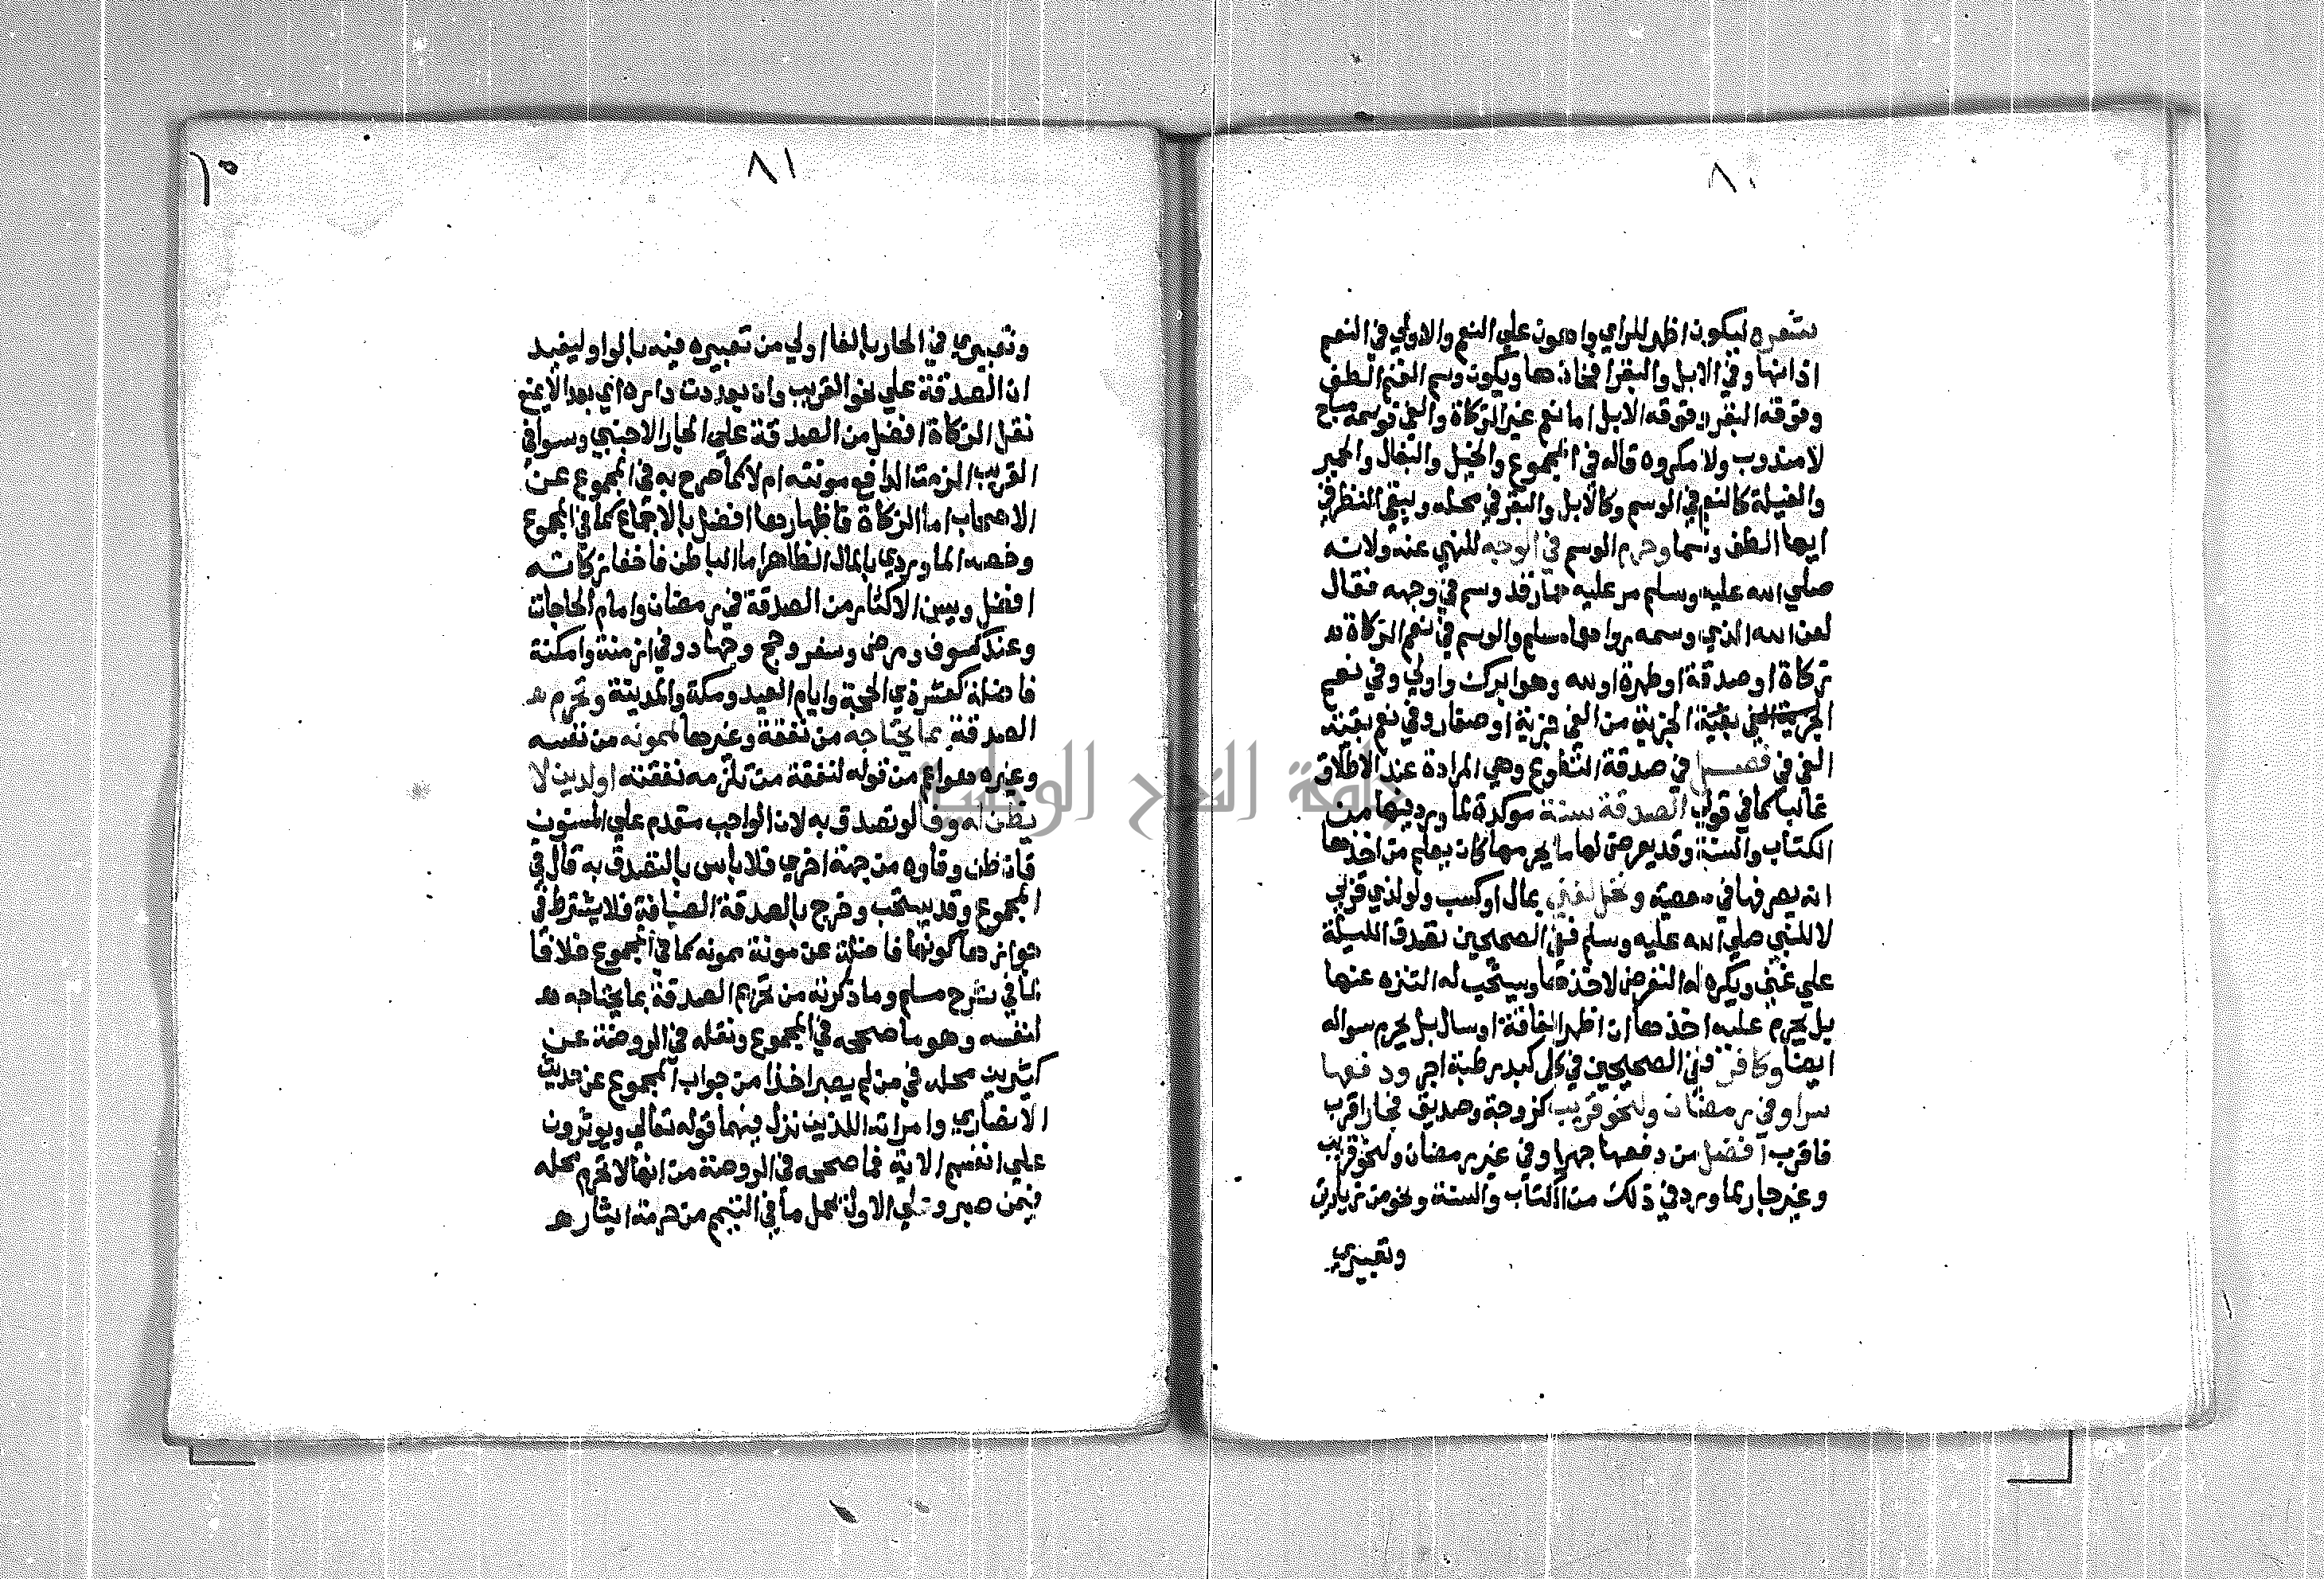 ٨٠
شعره ليكون اظهر للراي واهون علي النعم والاولي في الغنم
اذانها وفي الابل والبقر افخاذها ويكون وسم الغنم الطف
وفوقه البقر وفوقه الابل اما نعم غير الزكاة والفي فوسمه مباح
لا مندوب ولا مكروه قاله في المجموع والخيل والبغال والحمير
والفيلة كالنعم في الوسم وكالابل والبقر في محله ويبقي النظر في
ايها الطف وسما وحرم الوسم في الوجه للنهي عنه ولانه
صلي الله عليه وسلم مر عليه حمار قد وسم في وجهه فقال
لعن الله الذي وسمه رواهما مسلم والوسم في نعم الزكاة هـ
زكاة او صدقة او طهرة او لله وهو ابرك واولي وفي نعم
الجزية من الفي جزية او صغار وفي نعم بقية
الفي في فصل في صدقة التطوع وهي المرادة عند الاطلاق
غالبا كما في قولي الصدقة سنة موكدة لما ورد فيها من
الكتاب والسنة وقد يعرض لها ما يحرمها كان يعلم من اخذها
انه يصرفها في معصية وتحل لغني بمال او كسب ولو لذي قربي
لا للنبي صلي الله عليه وسلم ففي الصحيحين تصدق الليلة
علي غني ويكره له التعرض لاخذها ويستحب له التنزه عنها
بل يحرم عليه اخذها ان اظهر الفاقة او سال بل يحرم سواله
ايضا وكافر ففي الصحيحين في كل كبد رطبة اجر ودفعها
سرا وفي رمضان ولنحو قريب كزوجة وصديق فجار اقرب
فاقرب افضل من دفعها جهرا وفي غير رمضان ولنحو قريب
وغير جار لما ورد في ذلك من الكتاب والسنة ونحو من زيادتي
وتعبيري
٨١
وتعبيري في الجار بالفا اولي من تعبيره فيه بالواو ليفيد
ان الصدقة علي نحو القريب وان بعدت داره اي بعدا لا يمنع
نقل الزكاة افضل من الصدقة علي الجار الاجنبي وسوا في
القريب الزمت الدافع مونته ام لا كما صرح به في المجموع عن
الاصحاب اما الزكاة فاظهارها افضل بالاجماع كما في المجموع
وخصه الماوردي بالمال الظاهر اما الباطن فاخفا زكاته
افضل ويسن الاكثار من الصدقة في رمضان وامام الحاجات
وعند كسوف ومرض وسفر وحج وجهاد وفي ازمنة وامكنة
فاضلة كعشر ذي الحجة وايام العيد ومكة والمدينة وتحرم هـ
الصدقة بما يحتاجه من نفقة وغيرها لممونه من نفسه
وغيره هو اعم من قوله لنفقة من تلزمه نفقته او لدين لا
يظن له وفا لو تصدق به لان الواجب مقدم علي المسنون
فان ظن وفاوه من جهة اخري فلا باس بالتصدق به قال في
المجموع وقد يستحب وخرج بالصدقة الضيافة فلا يشترط في
جوازها كونها فاضلة عن مونة ممونه كما في المجموع خلافا
لما في شرح مسلم وما ذكرته من تحريم الصدقة بما يحتاجه هـ
لنفسه وهو ما صححه في المجموع ونقله في الروضة عن
كثيرين محله في من لم يصبر اخذا من جواب المجموع عن حديث
الانصاري وامراته اللذين نزل فيهما قوله تعالي ويوثرون
علي انفسهم الاية فما صححه في الروضة من انها لا تحرم محله
فيمن صبر وعلي الاول يحمل ما في التيمم من حرمة ايثار هـ